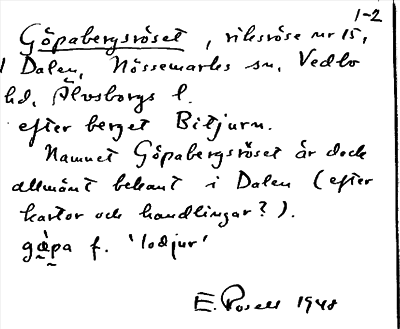 1-2
Göpabergsröset, riksröse nr 15,
i Dalen, Nössemarks sn, Vedbo
hd, Älvsborgs l.
efter berget Bitjurn.
Namnet Göpabergsröset är dock
allmänt bekant i Dalen (efter
kartor och handlingar?).
gö̀pa f. 'lodjur'
E. Rosell 1948